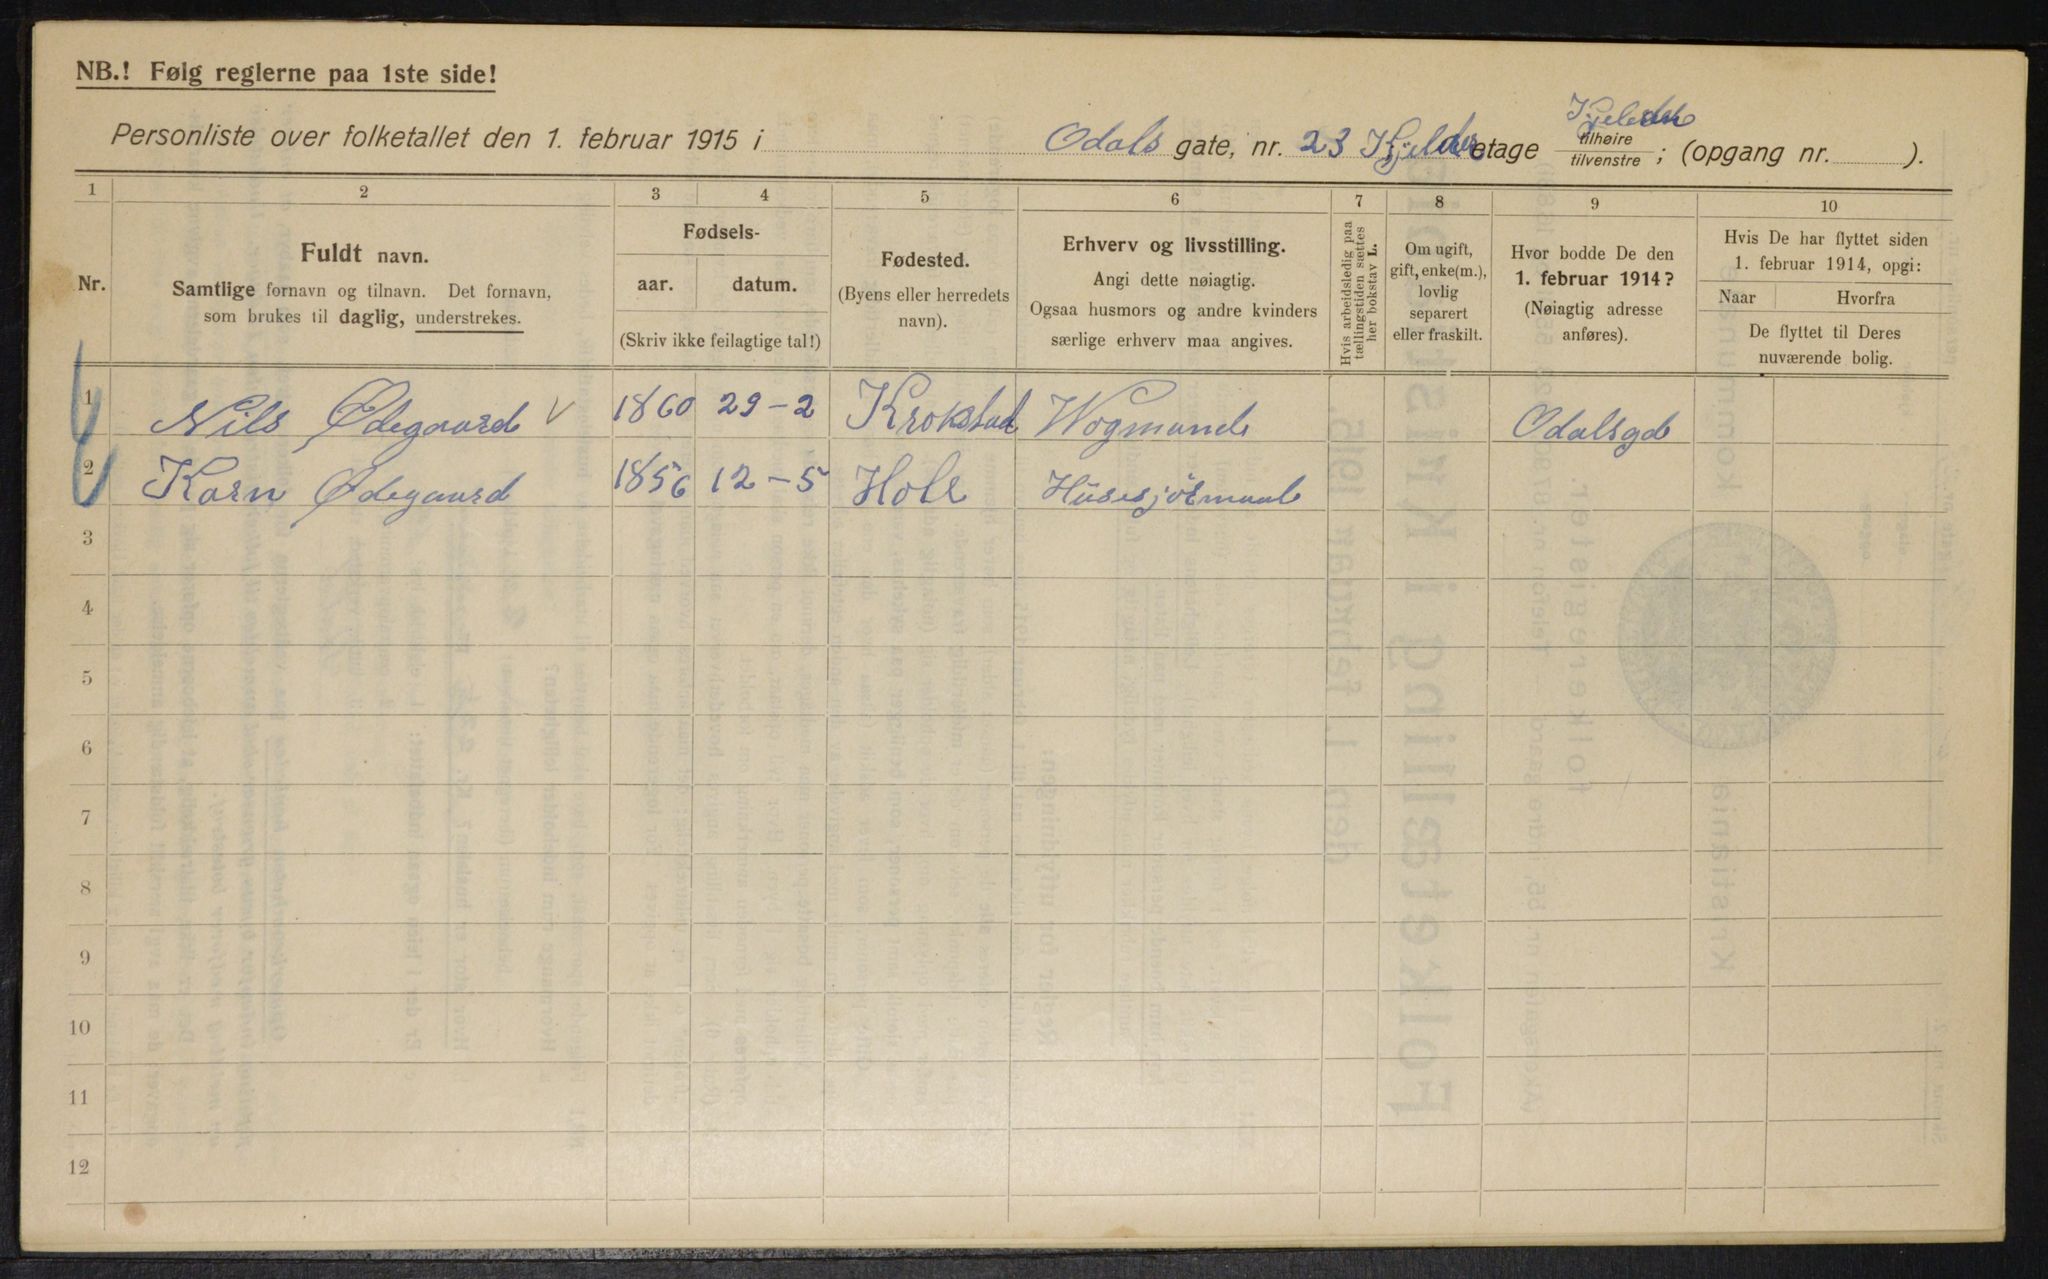 NB.! Følg reglerne paa 1ste side!
Personliste over folketallet den 1. februar 1915 i Odals gate, nr. 23 Kjelder etage tilhøire tilvenstre ; (opgang nr. ).
1 2 3 4 5 6 7 8 9 10
Nr.
Fuldt navn.
Samtlige fornavn og tilnavn. Det fornavn,
som brukes til daglig, understrekes.
Fødsels-
aar. datum.
(Skriv ikke feilagtige tal!)
Fødested.
(Byens eller herredets
navn).
Erhverv og livsstilling.
Angi dette nøiagtig.
Ogsaa husmors og andre kvinders
særlige erhverv maa angives.
Hvis arbeidsledig paa
tællingstiden sættes
her bokstav L.
Om ugift,
gift, enke(m.),
lovlig
separert
eller fraskilt.
Hvor bodde De den
1. februar 1914?
(Nøiagtig adresse
anføres).
Hvis De har flyttet siden
1. februar 1914, opgi:
Naar Hvorfra
De flyttet til Deres
nuværende bolig.
1 Nils Ødegaard V 1860 29-2 Krokstad Wogmand Odalsgd
2 Karn Ødegaard 1856 12-5 Hole
3
4
5
6
7
8
9
10
11
12